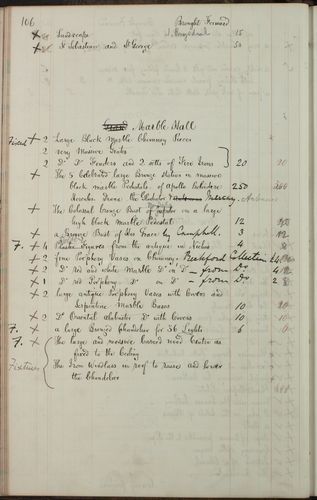 106
Brought Forward
x Landscape J. Hoppner 15
x St Sebastian and St George 50
Grand Marble Hall
Fixed + 2 Large Black Marble Chimney Pieces
2 very Massive Grates
2 Do Do Fenders and 2 setts of Fire Irons 20
+ The 5 Celebrated large Bronze Statues on massive
black marble Pedestals, of Apollo Belvidere 250
Mercury
+ The Colossal Bronze Bust of Jupiter on a large
high block marble Pedestal 12
+ a Bronze Bust of His Grace by Campbell. 3
F. + 4 Plaster Figures from the antique in Niches 4
+ 2 fine Porphory Vases on Chimney; Beckford Collection
x 2 Do Red and white Marble Do on Do - from Do 4
x 1 Do red Porphory Do on Do - from Do 2
x 2 large antique Porphory Vases with Covers and
Serpentine Marble Bases 10
x 2 Do Oriental alabaster Do with Covers 10
F. x a large Bronzed Chandelier for 36 Lights 6
F. x The large and massive Carved wood Centre as
fixed to the Ceiling
Fixtures The Iron Windlass in roof to raise and lower
the Chandelier